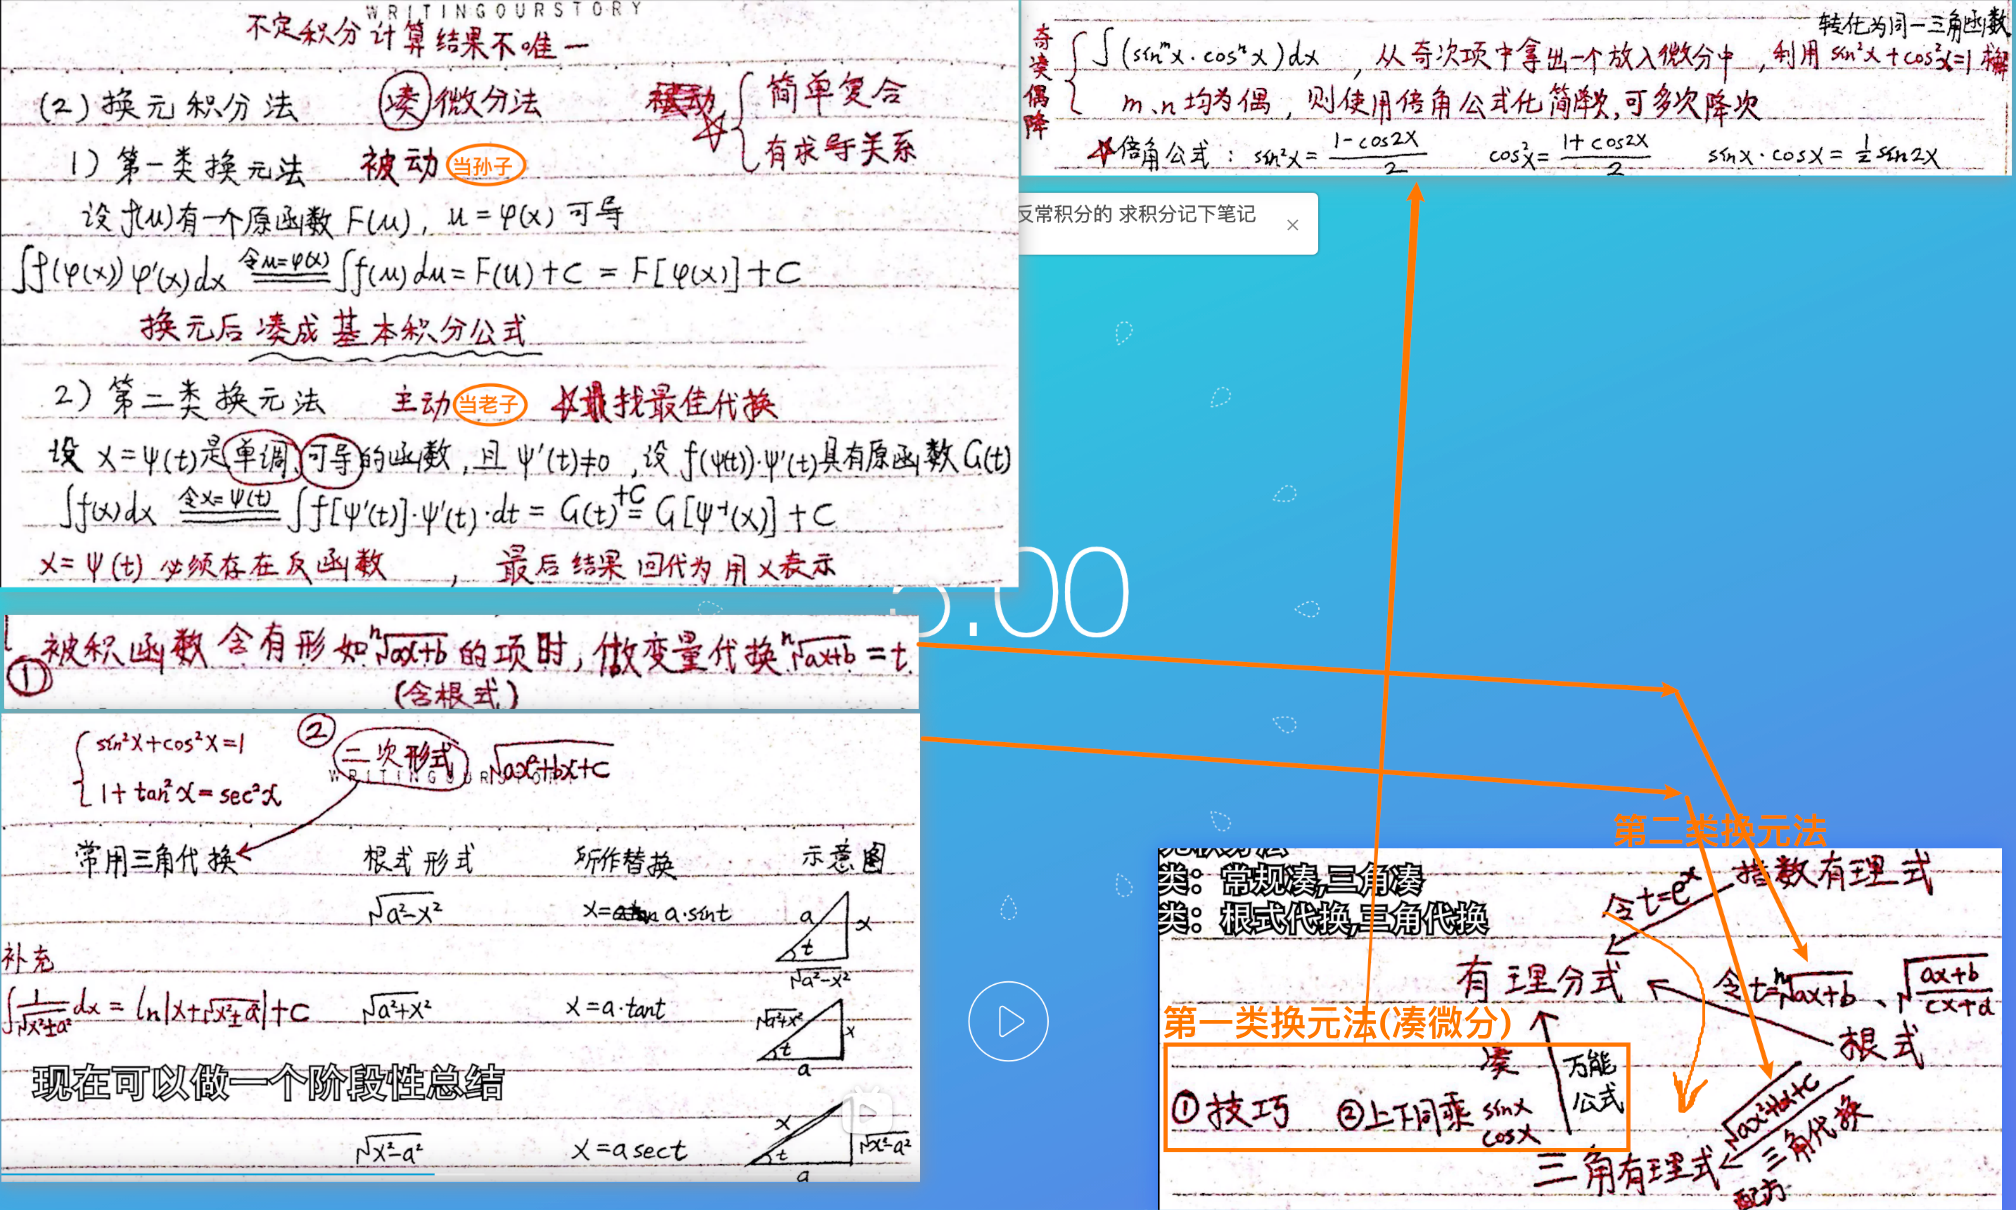 WRITINGOURSTORY
不定积分计算结果不唯一
(2) 换元积分法 凑微分法 被动 { 简单复合
有求导关系
1) 第一类换元法 被动 当孙子
设 f(u)有一个原函数 F(u), u=φ(x) 可导
∫f(φ(x))φ'(x)dx 令u=φ(x) ∫f(u)du=F(u)+C = F[φ(x)]+C
换元后凑成基本积分公式
2) 第二类换元法 主动 当老子 ☆ 找最佳代换
设 x=ψ(t)是单调,可导的函数,且 ψ'(t)≠0 ,设 f(ψ(t))·ψ'(t)具有原函数 G(t)
∫f(x)dx 令x=ψ(t) ∫f[ψ'(t)]·ψ'(t)·dt = G(t)+C = G[ψ⁻¹(x)]+C
x=ψ(t) 必须存在反函数 , 最后结果回代为用x表示
转化为同一三角函数
奇凑偶降
∫(sinᵐx·cosⁿx)dx ,从奇次项中拿出一个放入微分中,利用 sin²x+cos²x=1
m、n 均为偶,则使用倍角公式化简降次,可多次降次
☆倍角公式: sin²x=(1-cos2x)/2 cos²x=(1+cos2x)/2 sinx·cosx=½sin2x
反常积分的 求积分记下笔记 ×
5:00
① 被积函数含有形如ⁿ√(ax+b)的项时,做变量代换ⁿ√(ax+b)=t.
(含根式)
{ sin²x+cos²x=1
1+tan²x=sec²x
② 二次形式 √(ax²+bx+c)
WRITINGOUR
常用三角代换 根式形式 所作替换 示意图
√(a²-x²) x=a·sint a x t √(a²-x²)
补充
∫1/√(x²±a²) dx = ln|x+√(x²±a²)|+C √(a²+x²) x=a·tant √(a²+x²) x t a
现在可以做一个阶段性总结
√(x²-a²) x=asect x t √(x²-a²) a
第二类换元法
类: 常规凑,三角凑
类: 根式代换,三角代换
令t=eˣ 指数有理式
有理分式 令t=ⁿ√(ax+b)、√((ax+b)/(cx+d))
根式
第一类换元法(凑微分)
凑 万能公式
①技巧 ②上下同乘 sinx cosx
√(ax²+bx+c) 三角代换
三角有理式 配方